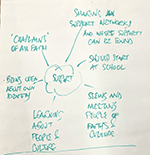 SHARING AN
SUPPORT NETWORKS
AND WHERE SUPPORT
CAN BE FOUND
'CHAPLAINS'
OF AN FAITH
SHOULD START
AT SCHOOL
SUPPORT
BEING
ABOUT OWN
IDENTITY
SEEING AND
MEETING PEOPLE OF
FAITHS &
CULTURE
LEARNING
ABOUT
PEOPLE &
CULTURE